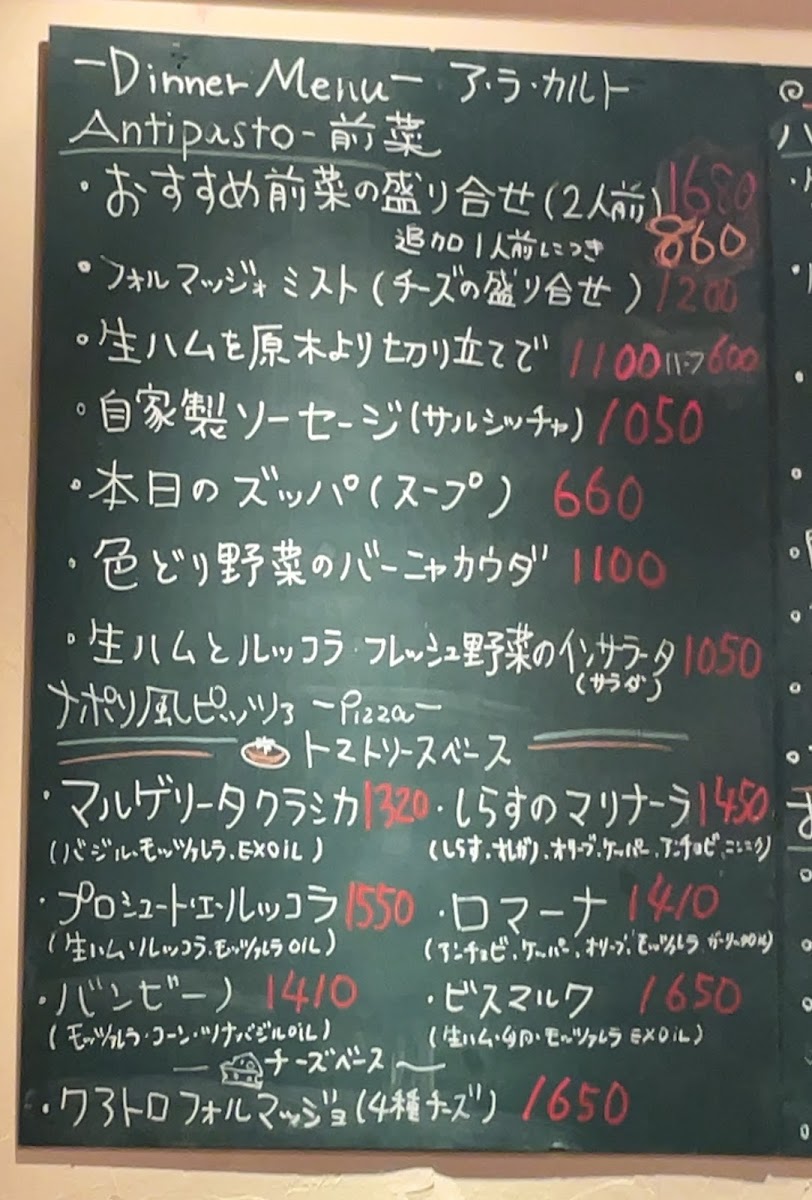 -Dinner Menu- ア・ラ・カルト
Antipasto-前菜
・おすすめ前菜の盛り合せ(2人前) 1680
追加1人前につき 860
・フォルマッジォミスト(チーズの盛り合せ) 1200
・生ハムを原木より切り立てで 1100 ハーフ600
・自家製ソーセージ(サルシッチャ) 1050
・本日のズッパ(スープ) 660
・色どり野菜のバーニャカウダ 1100
・生ハムとルッコラ・フレッシュ野菜のインサラータ 1050
(サラダ)
ナポリ風ピッツァ -Pizza-
トマトソースベース
・マルゲリータクラシカ 1320 ・しらすのマリナーラ 1450
(バジル、モッツァレラ、EXOiL) (しらす、オレガノ、オリーブ、ケッパー、アンチョビ、ニンニク)
・プロシュート・エ・ルッコラ 1550 ・ロマーナ 1410
(生ハム・ルッコラ、モッツァレラOiL) (アンチョビ、ケッパー、オリーブ、モッツァレラ、ガーリックOiL)
・バンビーノ 1410 ・ビスマルク 1650
(モッツァレラ・コーン・ツナ・バジルOiL) (生ハム・卵・モッツァレラ EXOiL)
チーズベース
・クアトロフォルマッジョ(4種チーズ) 1650